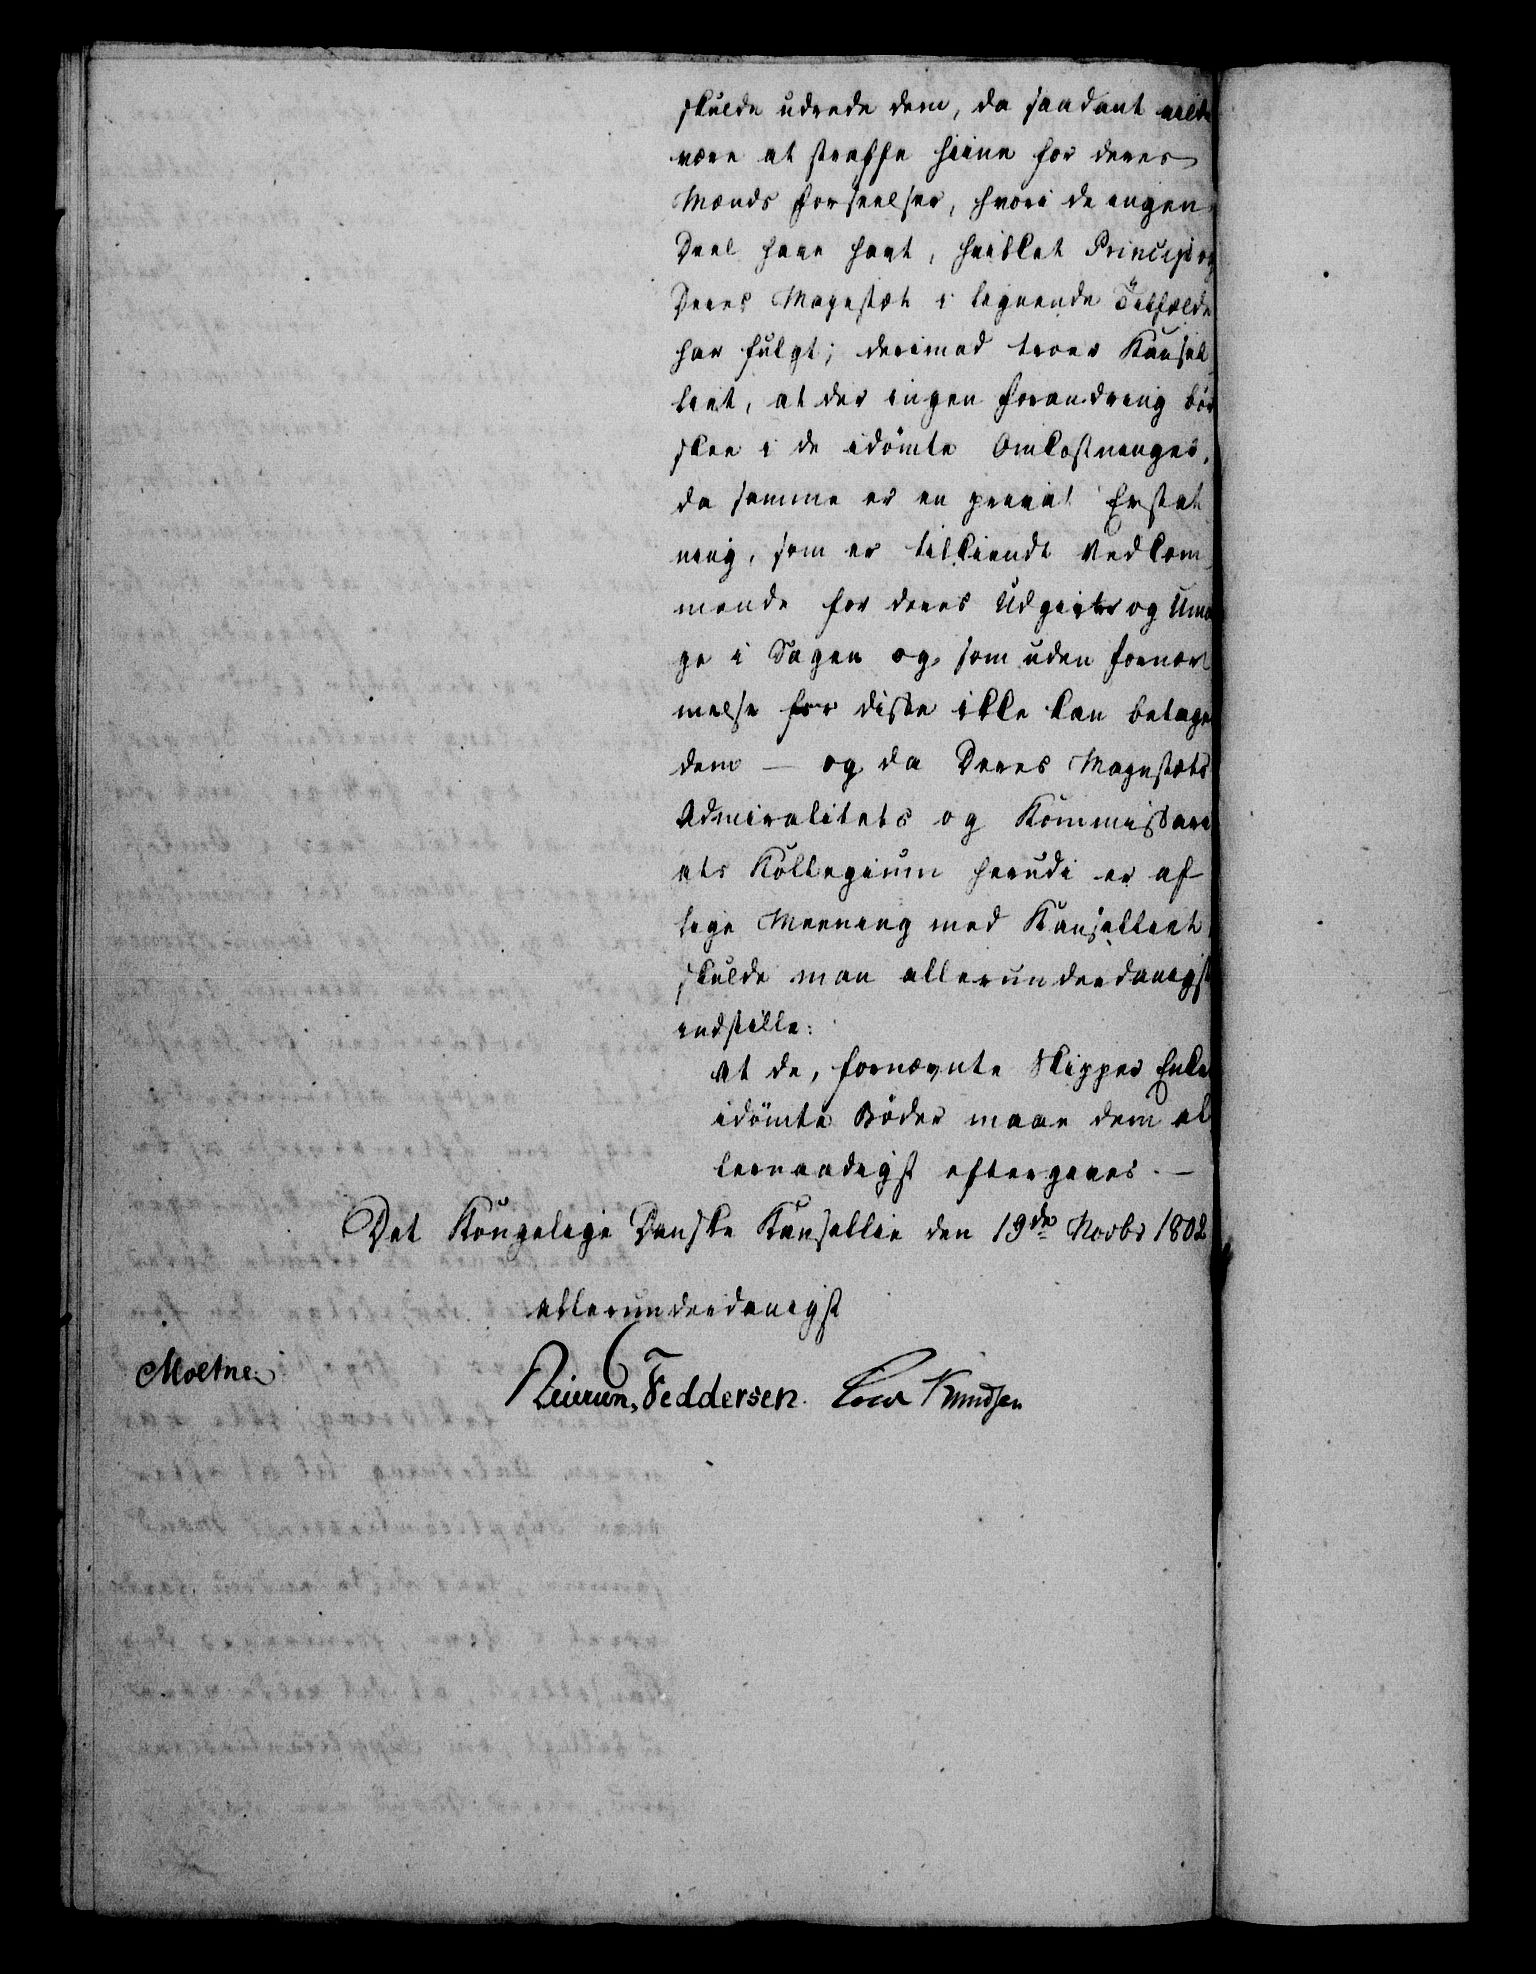 skulde udrede dem, da saadant vilde
være at straffe hiine for deres
Mænds Forseelser, hvori de ingen
Deel have havt, hvilket Princip og
Deres Majestæt i lignende Tilfælde
har fulgt; derimod troer Kansel-
liet, at der ingen Forandring bör
skee i de idömte Omkostninger,
da samme er en privat Erstat-
ning, som er tilkiendt Vedkom-
mende for deres Udgivter og Uma-
ge i Sagen og som uden Fornær-
melse for disse ikke kan betages
dem — og da Deres Majestæts
Admiralitets og Kommissari-
ats Kollegium herudi er af
lige Meening med Kanselliet
skulde man allerunderdanigst
indstille:
At de, fornævnte Skipper Enker
idömte Böder maae dem al-
lernaadigst eftergives. —
Det Kongelige Danske Kansellie den 19de Novbr 1802
allerunderdanigst
Moltke.
Feddersen. Knudsen